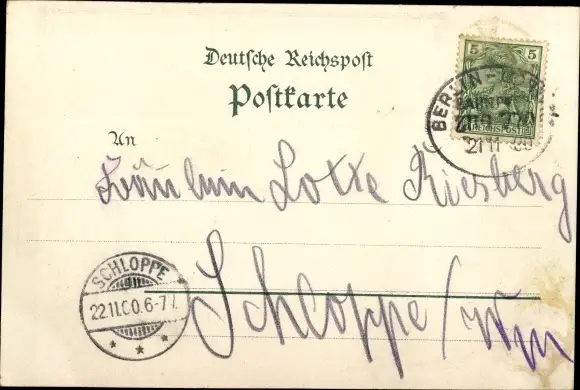 Deutsche Reichspost
Postkarte
5 5
BERLIN
BAHNPOST
ZUG
21 11 00
REICHSPOST
An
Fräulein Lotte Riesberg
SCHLOPPE
22.11.00.6-7
Schloppe / Wpn